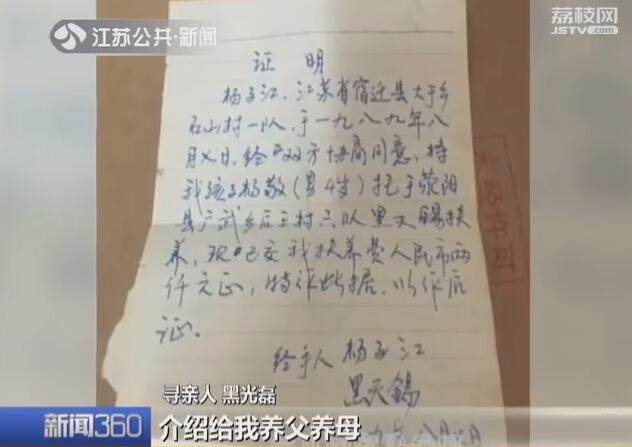 江苏公共·新闻
荔枝网
JSTV.com
证 明
杨子江，江苏省宿迁县大于乡
石山村一队，于一九八九年八
月 日，经 双方协商同意，将
我孩子杨敬（男4岁）托于荥阳
县广武乡后王村六队黑天赐扶
养，现已交我扶养费人民币两
仟元正，特作此据，以作后
证。
经手人 杨子江
黑天锡
八月 日
未经许可
寻亲人 黑光磊
新闻360
介绍给我养父养母